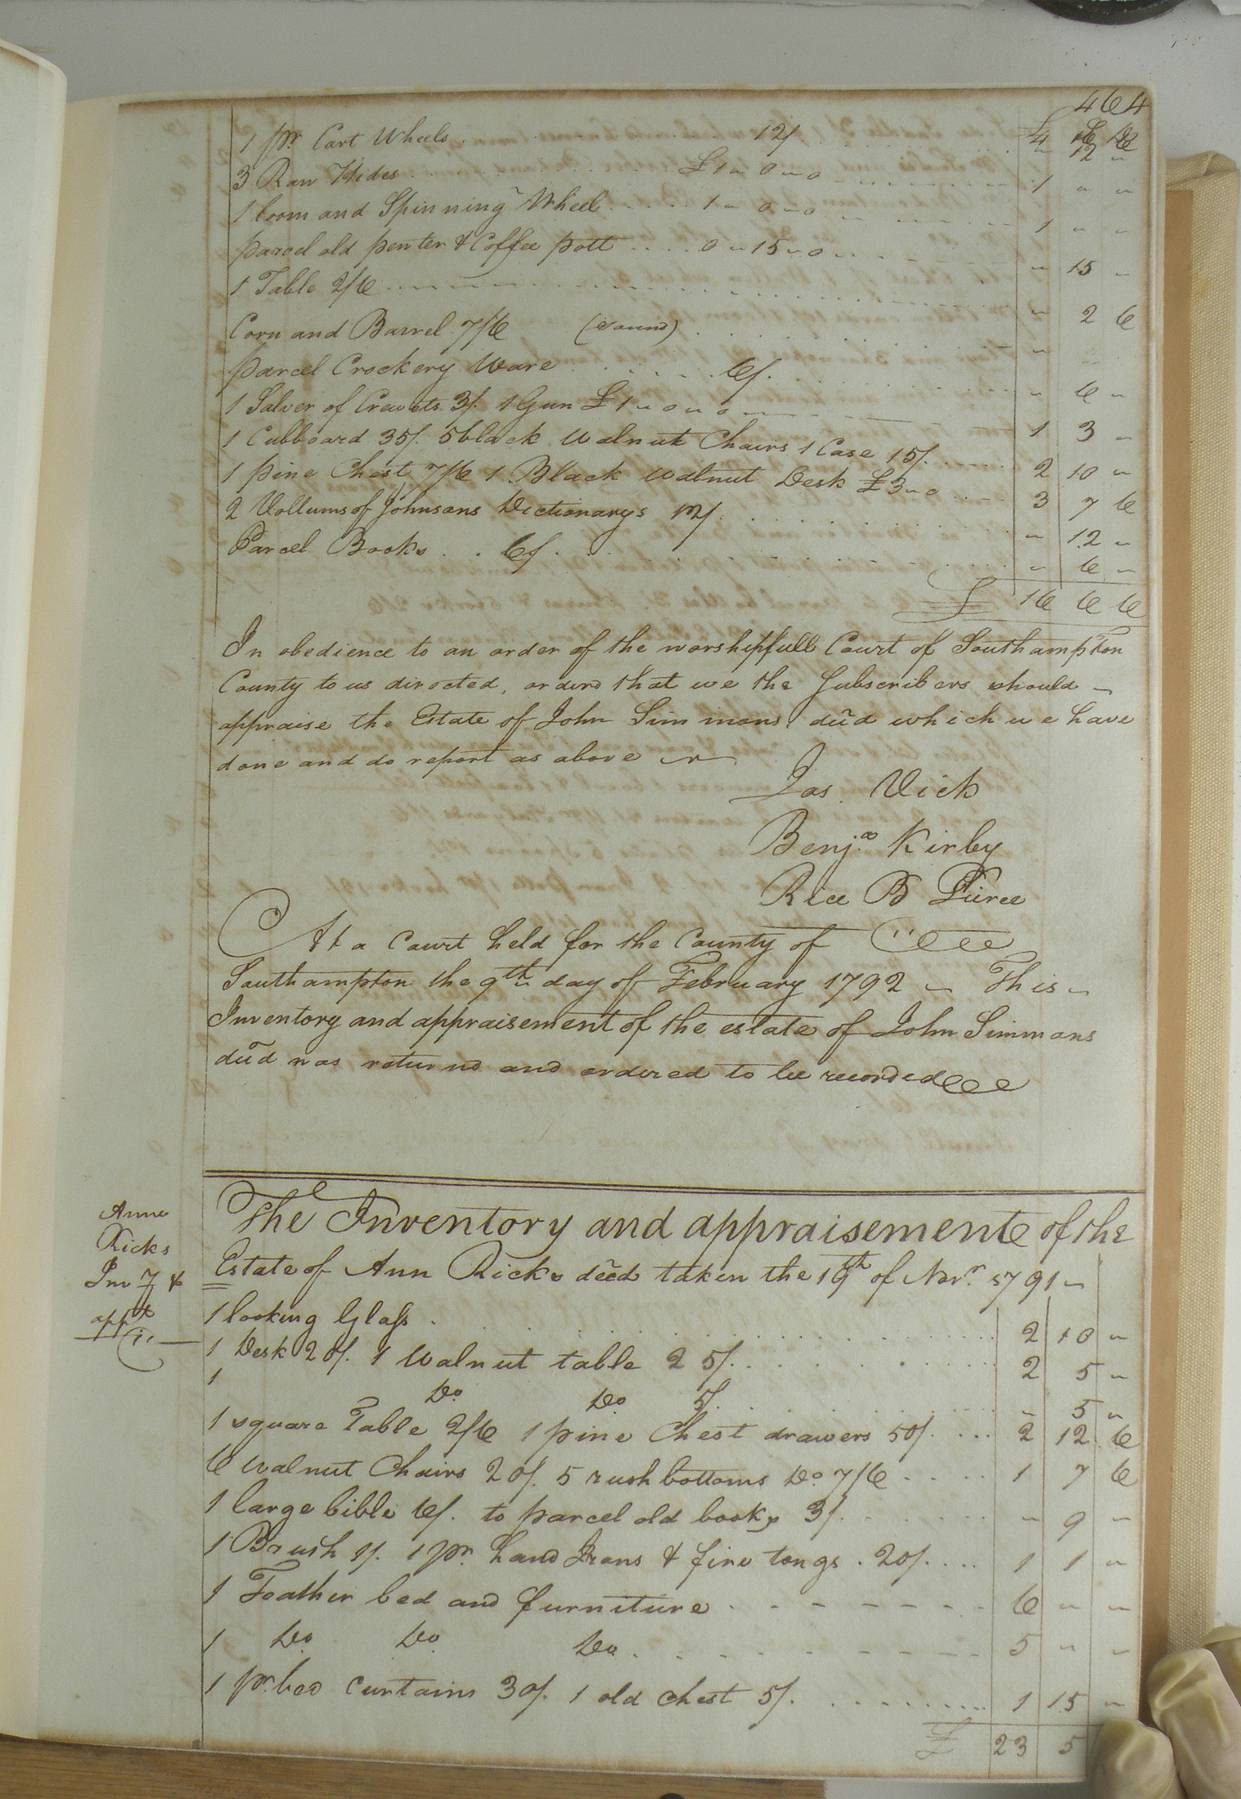 464
1 pr. Cart Wheels . 12/ 4 16 6
~ 12 ~
3 Raw Hides . . . £1 ~ 0 ~ 0 1 ~ ~
1 loom and Spinning Wheel . . . . 1 ~ 0 ~ 0 1 ~ ~
parcel old pewter & Coffee pott . . . . 0 ~ 15 ~ 0 ~ 15 ~
1 Table 2/6 ~ 2 6
Corn and Barrel 7/6 ~
parcel Crockery Ware . . . . . . 6/. ~ 6 ~
1 Salver of Crewits 3/. 1 Gun £1 ~ 0 ~ 0 1 3 ~
1 Cubboard 35/. 5 black Walnut Chairs 1 Case 15/. 2 10 ~
1 pine Chest 7/6 1 Black Walnut Desk £3 ~ 0 3 7 6
2 Vollums of Johnsons Dictionarys 12/ ~ 12 ~
Parcel Books . . 6/. ~ 6 ~
£ 16 6 6
In obedience to an order of the worshipfull Court of Southampton
County to us directed, orderd that we the Subscribers should ~
appraise the Estate of John Simmons decd which we have
done and do report as above ~
Jas. Vick
Benja. Kirby
Rice B Pierce
At a Court held for the County of
Southampton the 9th day of February 1792 ~ This ~
Inventory and appraisement of the estate of John Simmons
decd was returnd and ordered to be recorded
Anne
Ricks
Inv.y &
appt
The Inventory and appraisemente of the
Estate of Ann Ricks decd taken the 19th of Novr. 1791 ~
1 looking Glass . 2 10 ~
1 Desk 20/. 1 Walnut table 25/. 2 5 ~
1 Do Do 5/. ~ 5 ~
1 square Table 2/6 1 pine Chest drawers 50/. 2 12 6
6 Walnut Chairs 20/. 5 rush bottoms Do. 7/6 1 7 6
1 large bible 6/. to parcel old books 3/. ~ 9 ~
1 Brush 1/. 1 pr. hand Irons & fire tongs . 20/. 1 1 ~
1 Feather bed and furniture 6 ~ ~
1 Do. Do. Do. 5 ~ ~
1 pr. bed Curtains 30/. 1 old chest 5/. 1 15 ~
£ 23 5